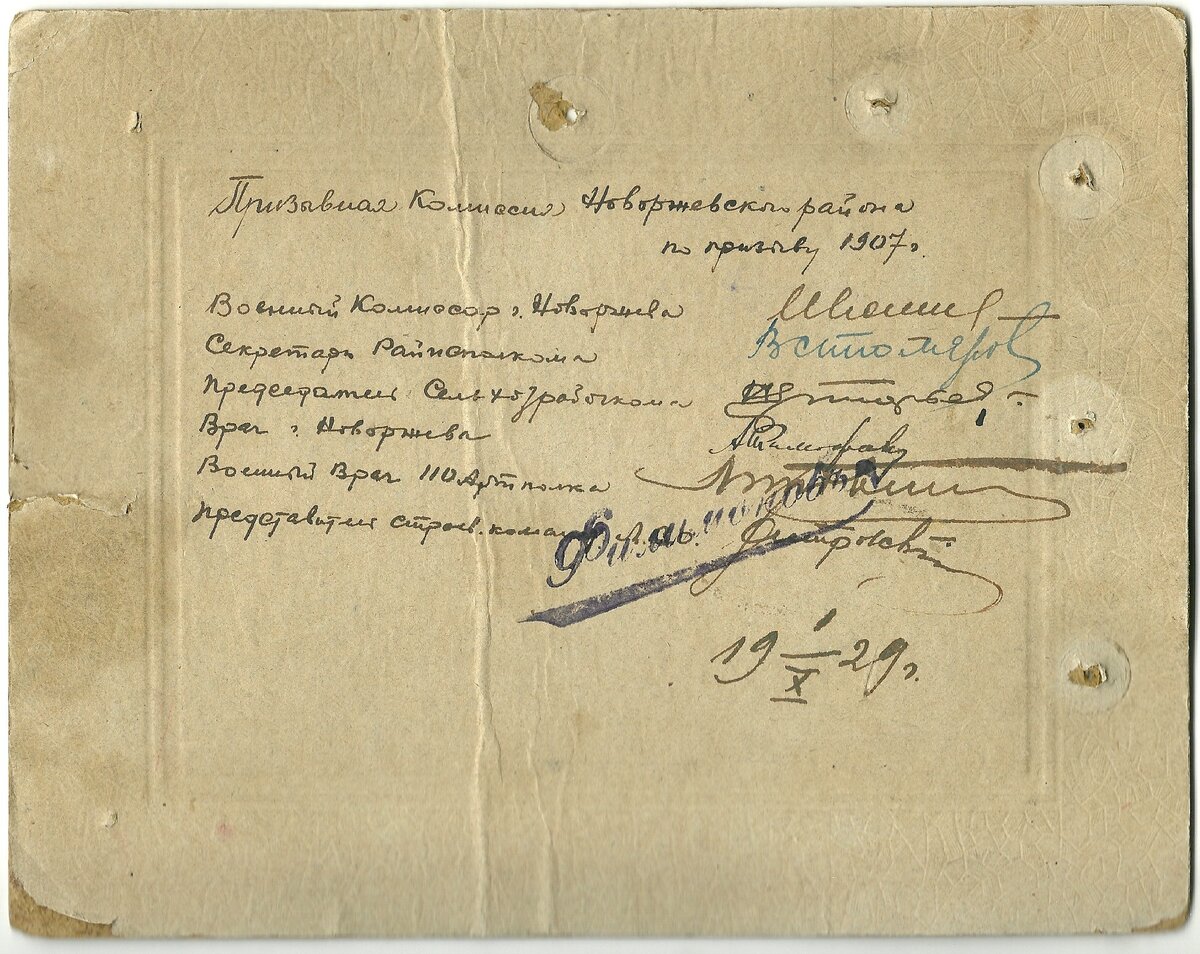 Призывная Комиссия Новоржевского района
по призыву 1907 г.
Военный Комиссар г. Новоржева
Секретарь Райисполкома Встоляров
Председатель Сельхозрабочкома
Врач г. Новоржева
Военный Врач 110 Артполка
Представитель строев. Дмитровский
Филимоновъ
19 1/X 29 г.